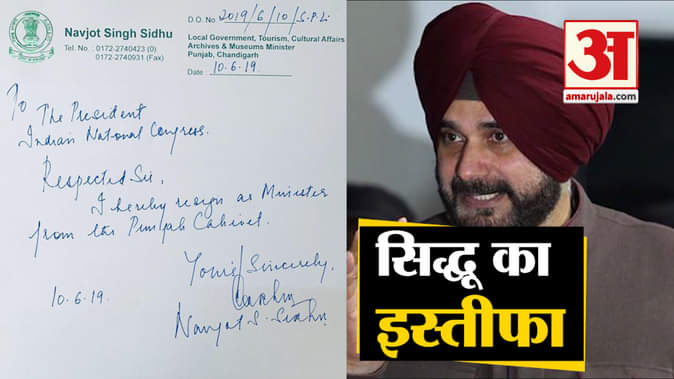 Navjot Singh Sidhu
Tel. No. : 0172-2740423 (O)
0172-2740931 (Fax)
D.O. No 2019/6/10/S.P.L.
Local Government, Tourism, Cultural Affairs
Archives & Museums Minister
Punjab, Chandigarh
Date 10.6.19.
To
The President
Indian National Congress.
Respected Sir,
I hereby resign as Minister
from the Punjab Cabinet.
Yours Sincerely,
10.6.19.
Navjot S. Sidhu
अ
amarujala.com
सिद्धू का
इस्तीफा